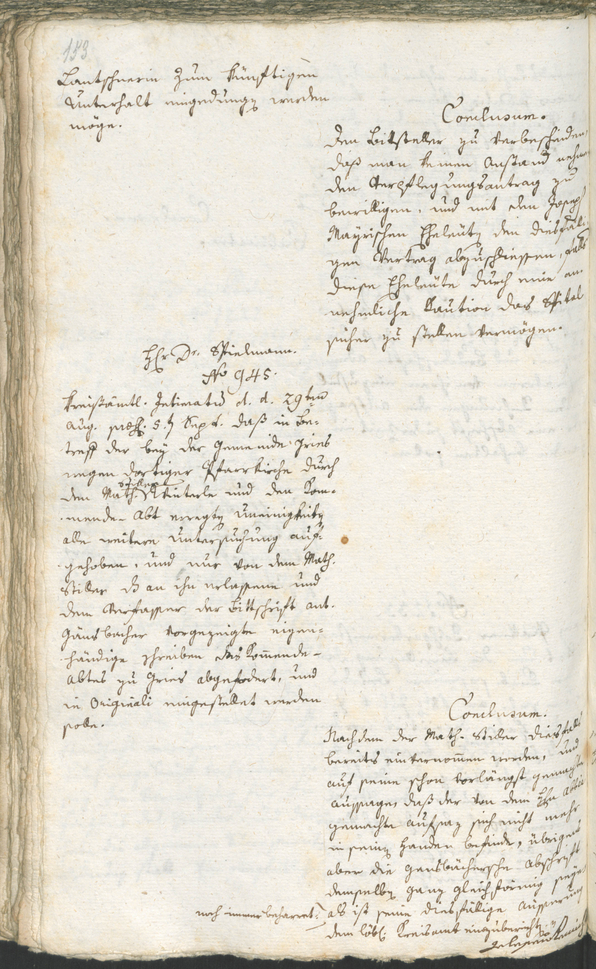 153
Lantschnerin zum künftigen
Unterhalt eingedungen werden
möge.
Conclusum.
Den Bittsteller zu verbescheiden,
daß man keinen Anstand nehme
den Verpflegungsantrag zu
bewilligen, und mit den Joseph
Mayrischen Eheleuten den diesfäl-
gen Vertrag abzuschliessen, falls
diese Eheleute durch eine an-
nehmliche Kaution das Spital
sicher zu stellen vermögen.
Hr. Dr. Spielmann.
No 945.
Kreisämtl. Intimatum d. d. 29ten
Aug. præs. 5. Sept. daß in Be-
treff der bey der Gemeinde Gries
wegen dortiger Pfarrkirche durch
den Math. Stiller und den Kom-
mende- Abt erregten Uneinigkeiten
alle weitere Untersuchung auf-
gehoben, und nur von dem Math.
Stiller das an ihn erlassene und
dem Verfasser der Bittschrift Ant.
Gänsbacher vorgezeigte eigen-
händige Schreiben des Kommende-
Abtes zu Gries abgefodert, und
in Originali eingestellet werden
solle.
Conclusum.
Nachdem der Math. Stiller diesfalls
bereits einvernommen worden, und
auf seine schon vorlängst gemachte
Aussage, daß der von dem Hrn Abten
gemachte Aufsaz sich nicht mehr
in seinen Handen befinde, übrigens
aber die Gensbachersche Abschrift
demselben ganz gleichförmig seye
noch immer beharret
als ist seine diesfällige Äusserung
dem löbl. Kreisamt einzuberichten